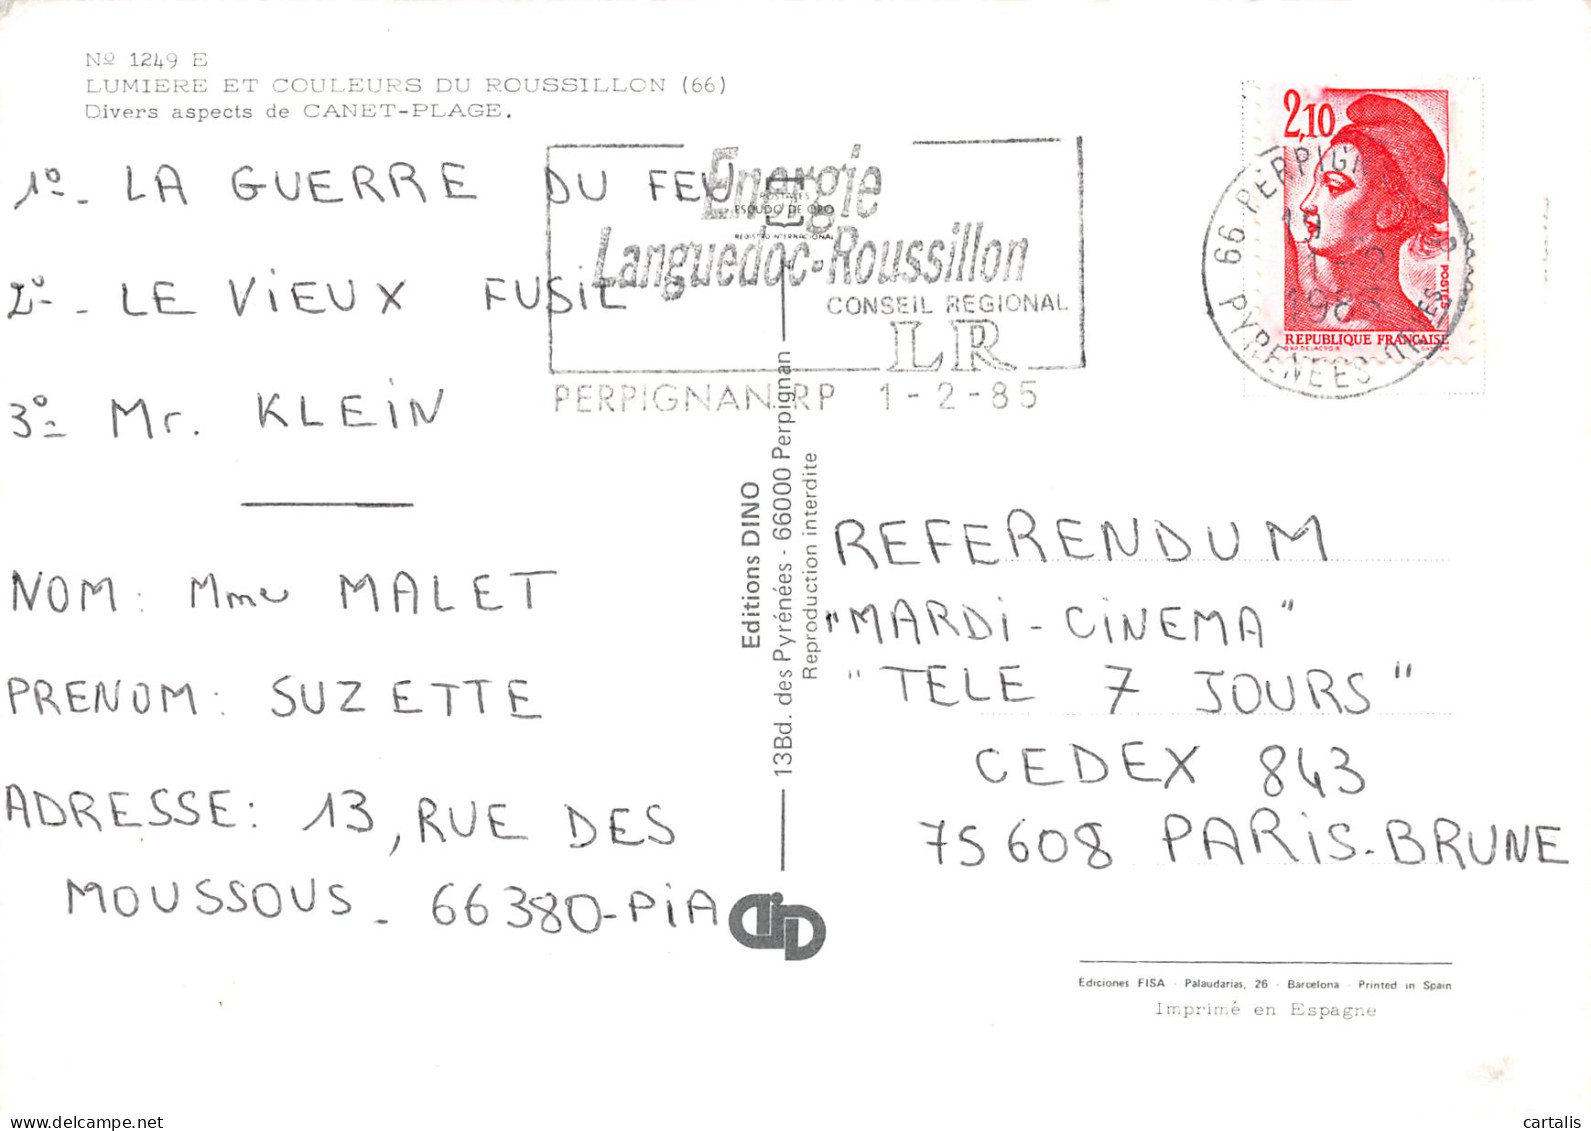 Nº 1249 E
LUMIERE ET COULEURS DU ROUSSILLON (66)
Divers aspects de CANET-PLAGE.
1º - LA GUERRE DU FEU
2º - LE VIEUX FUSIL
3º - Mr. KLEIN
NOM : Mme MALET
PRENOM : SUZETTE
ADRESSE : 13, RUE DES
MOUSSOUS - 66380-PIA
Energie
Languedoc-Roussillon
CONSEIL REGIONAL
LR
PERPIGNAN RP 1-2-85
POSTALES
ESCUDO DE ORO
REGISTRO INTERNACIONAL
Editions DINO
13Bd. des Pyrénées - 66000 Perpignan
Reproduction interdite
2,10
POSTES
REPUBLIQUE FRANÇAISE
66 PERPIGNAN
PYRENEES-ORLES
REFERENDUM
"MARDI-CINEMA"
"TELE 7 JOURS"
CEDEX 843
75608 PARIS-BRUNE
Ediciones FISA - Palaudarias, 26 - Barcelona - Printed in Spain
Imprimé en Espagne
cartalis